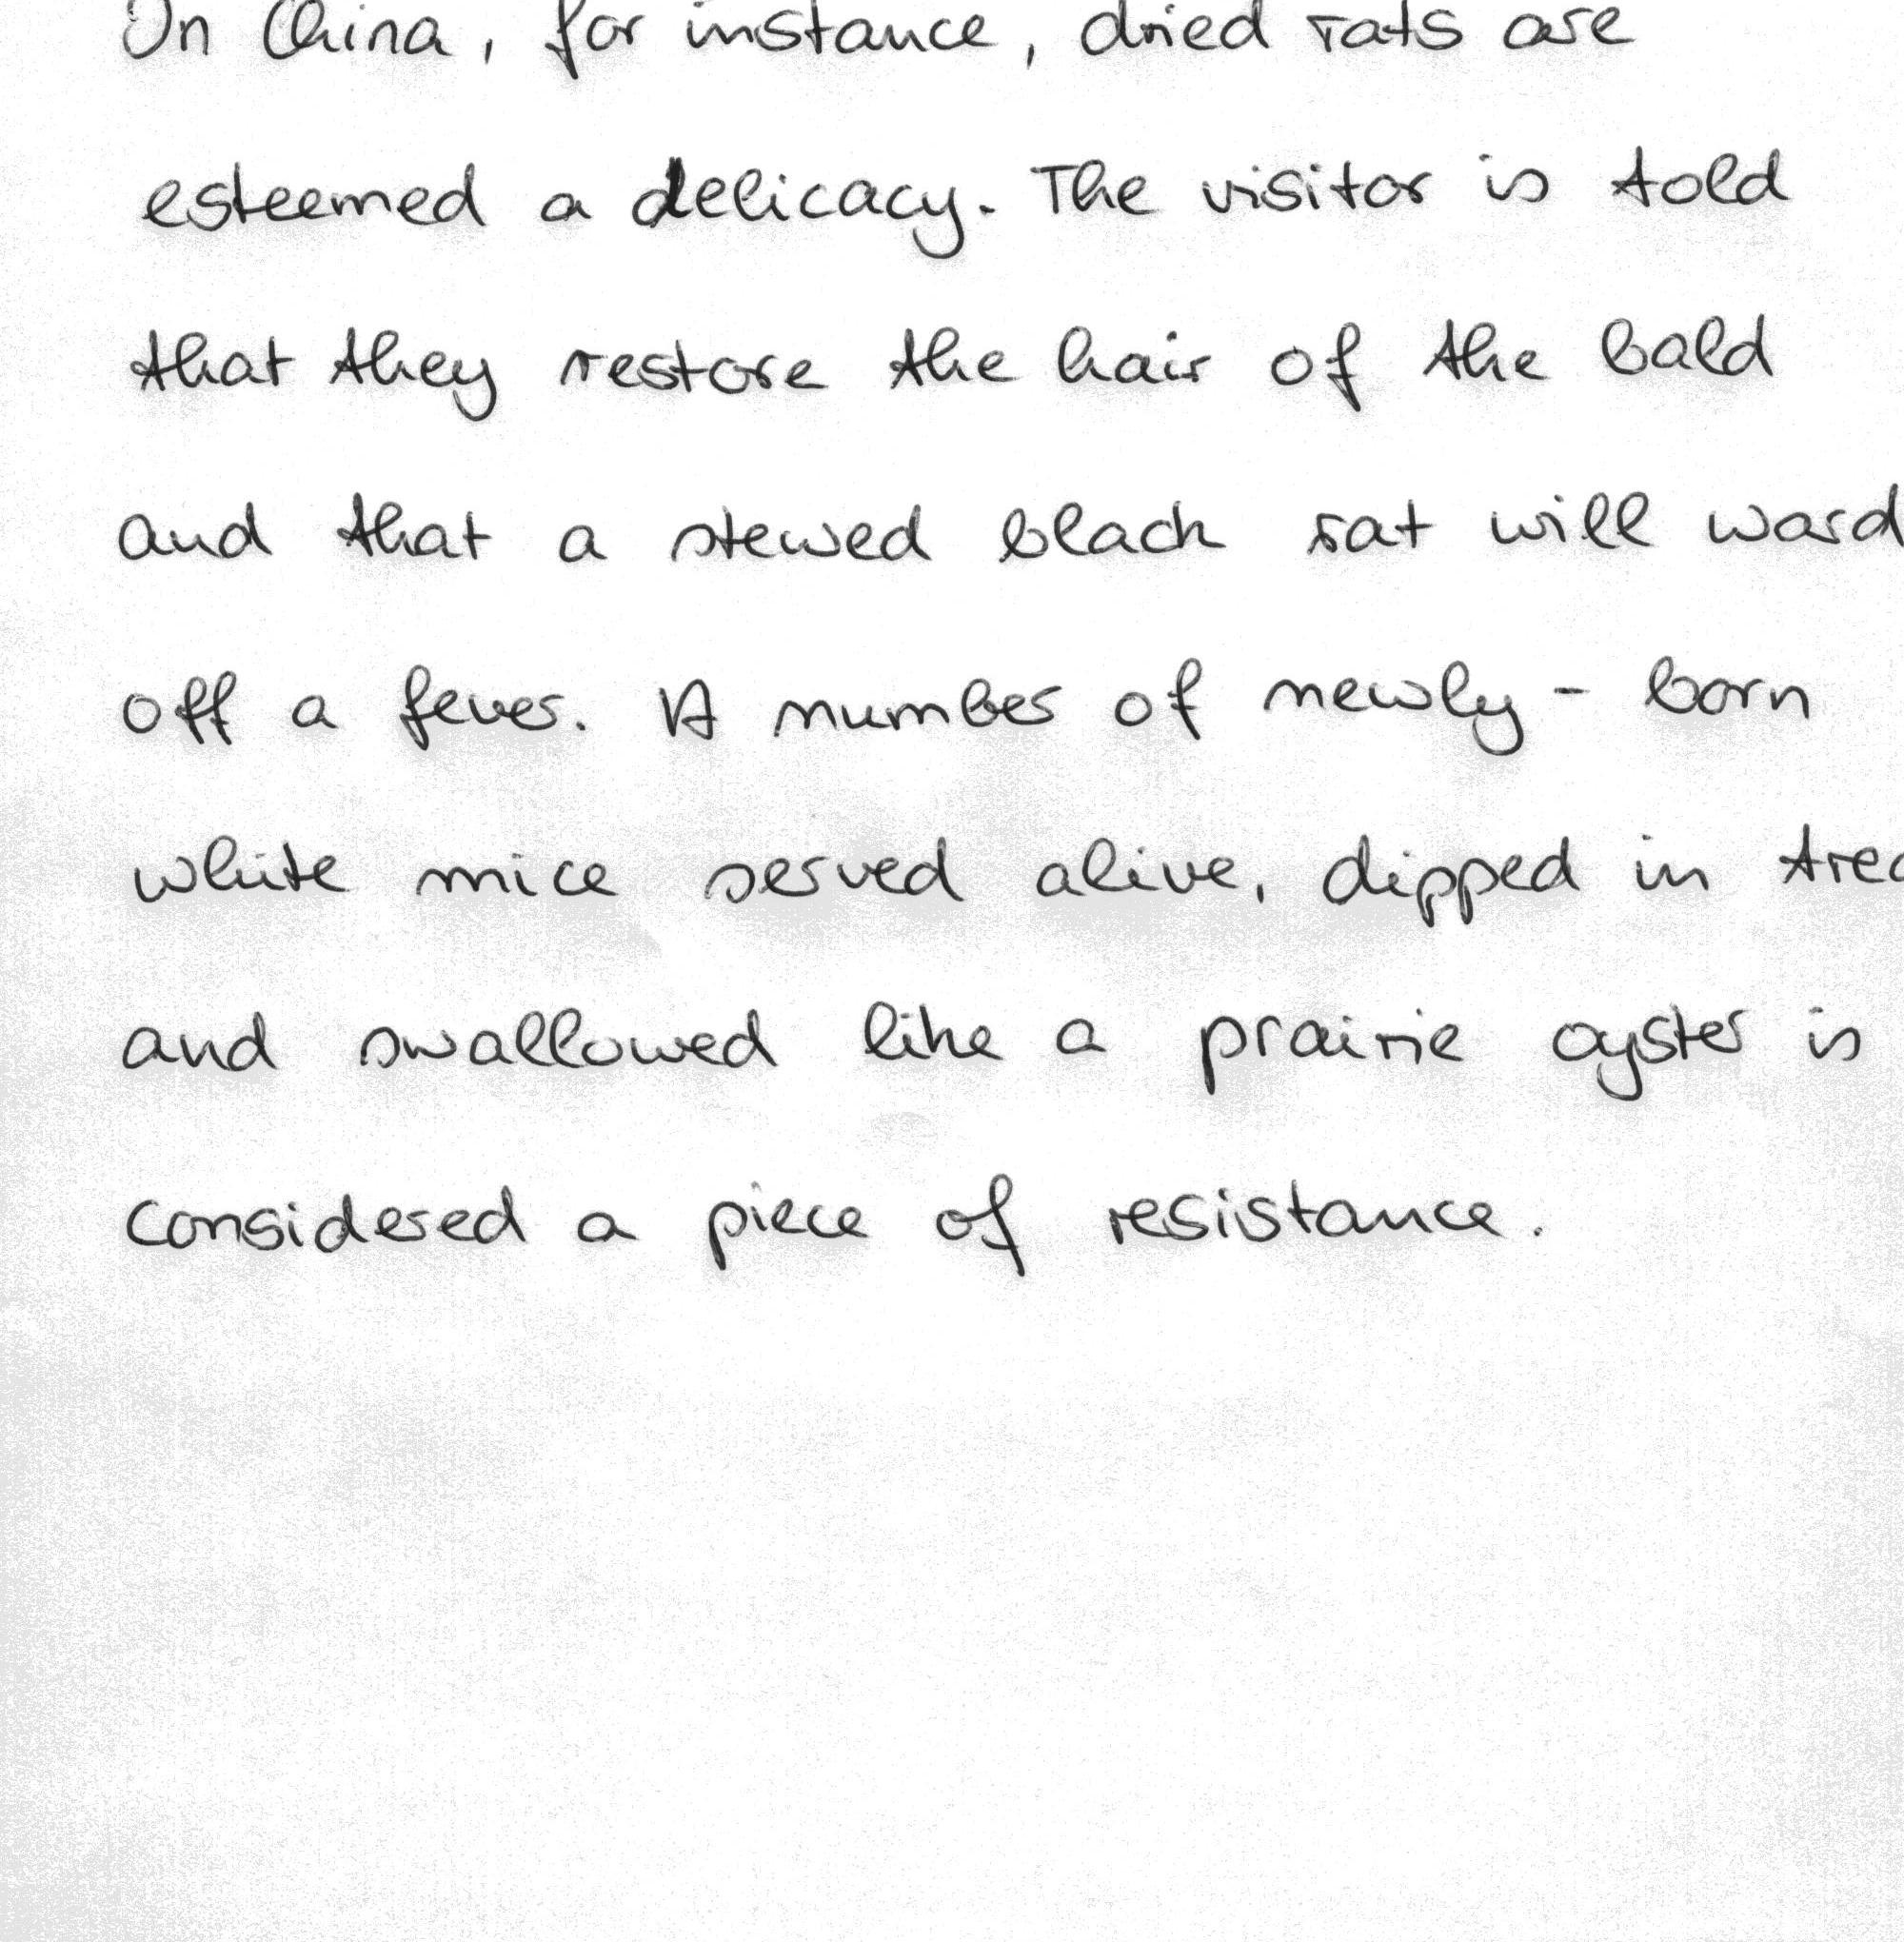 In China, for instance, dried rats are
esteemed a delicacy. The visitor is told
that they restore the hair of the bald
and that a stewed black rat will ward
off a fever. A number of newly - born
white mice served alive, dipped in
and swallowed like a prairie oyster is
considered a piece of resistance.